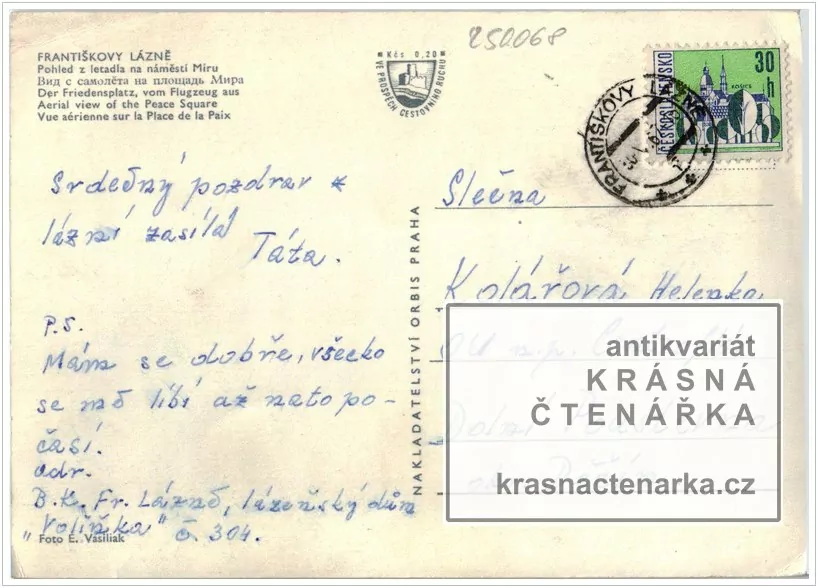 FRANTIŠKOVY LÁZNĚ
Pohled z letadla na náměstí Míru
Вид с самолёта на площадь Мира
Der Friedensplatz, vom Flugzeug aus
Aerial view of the Peace Square
Vue aérienne sur la Place de la Paix
Kčs 0,20
VE PROSPĚCH CESTOVNÍHO RUCHU
250068
ČESKOSLOVENSKO
KOŠICE
30 h
FRANTIŠKOVY LÁZNĚ
Srdečný pozdrav z
lázní zasílá
Táta.
P.S.
Mám se dobře, všecko
se mě líbí až nato po-
časí.
adr.
B.K. Fr. Lázně, lázeňský dům
"Volíňka" č. 304.
Foto E. Vasiliak
NAKLADATELSTVÍ ORBIS PRAHA
Slečna
Kolářová Helenka
OU n.p.
Dolní
antikvariát
KRÁSNÁ
ČTENÁŘKA
krasnactenarka.cz